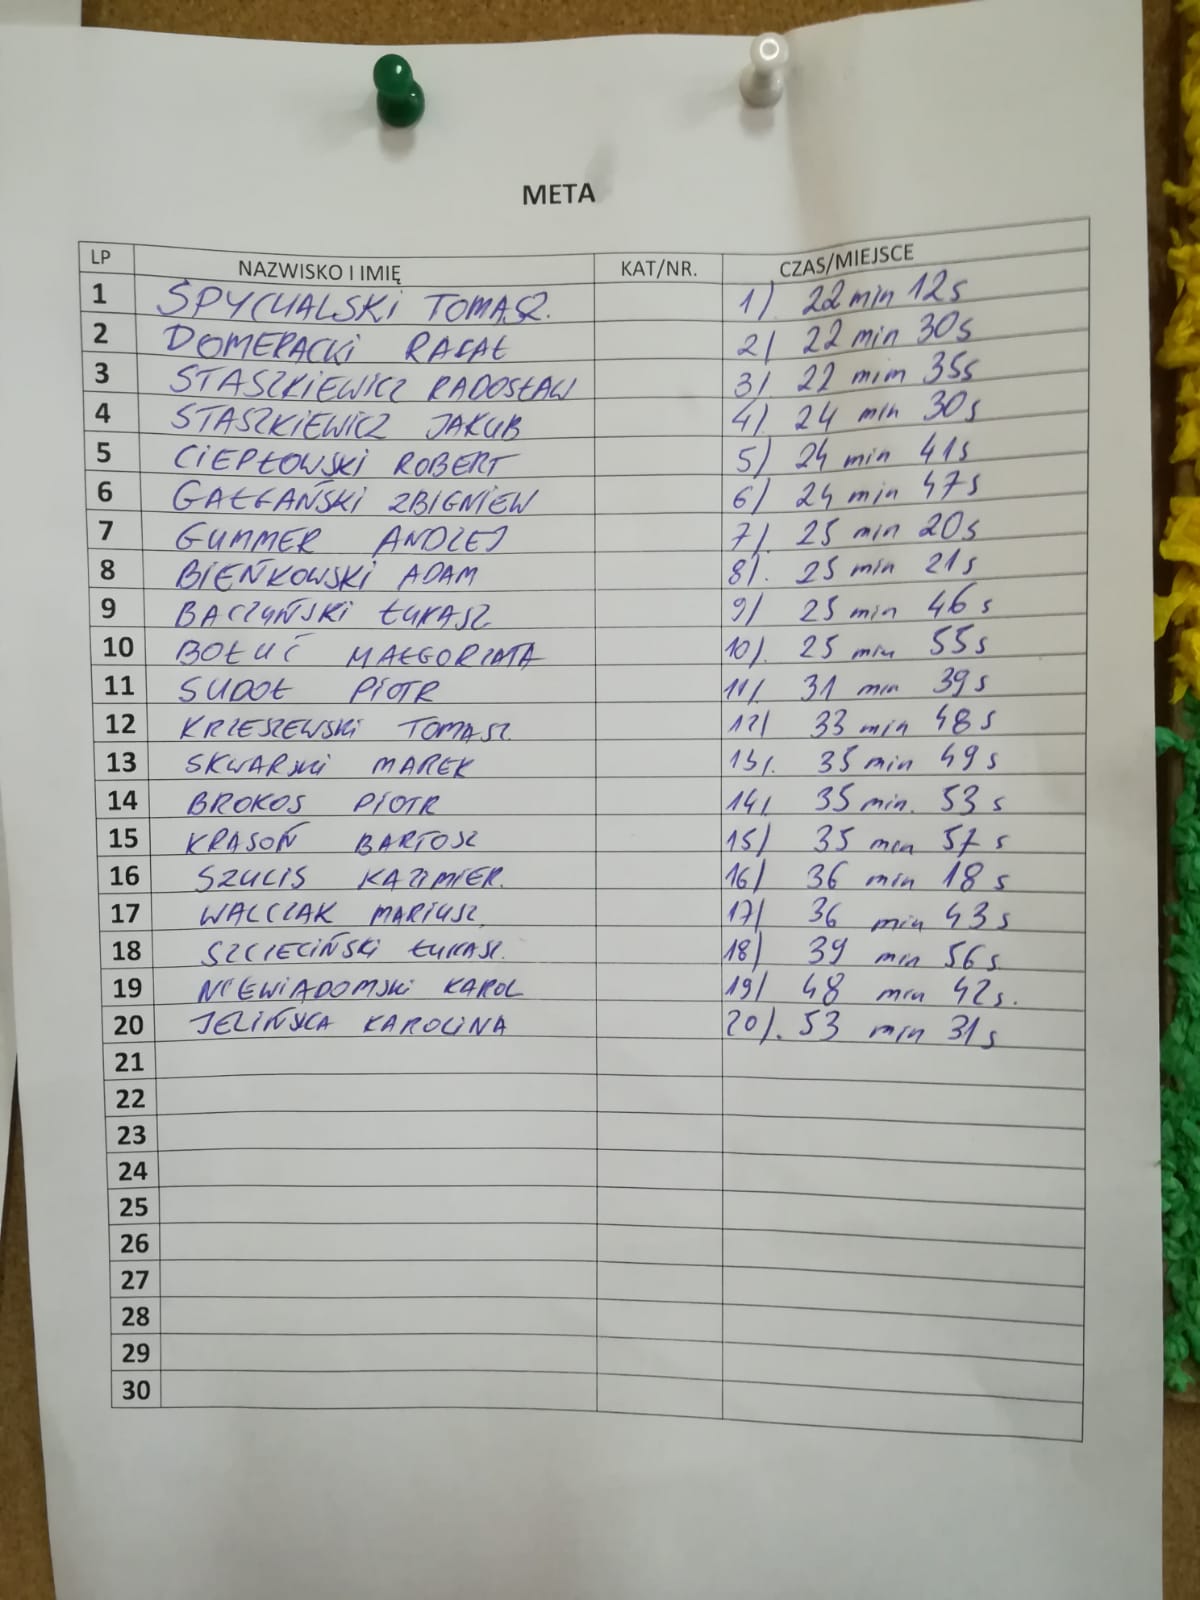 META
LP NAZWISKO I IMIĘ KAT/NR. CZAS/MIEJSCE
1 SPYCHALSKI TOMASZ. 1) 22 min 12s
2 DOMERACKI RAFAŁ 2) 22 min 30s
3 STASZKIEWICZ RADOSŁAW 3) 22 min 35s
4 STASZKIEWICZ JAKUB 4). 24 min 30s
5 CIEPŁOWSKI ROBERT 5) 24 min 41s
6 GAŁGAŃSKI ZBIGNIEW 6) 24 min 47s
7 GUMMER ANDZEJ 7). 25 min 20s
8 BIEŃKOWSKI ADAM 8). 25 min 21s
9 BACZYŃSKI ŁUKASZ 9) 25 min 46s
10 BOŁUĆ MAŁGORZATA 10). 25 min 55s
11 SUDOŁ PIOTR 11). 31 min 39s
12 KRZESZEWSKI TOMASZ 12) 33 min 48s
13 SKWARSKI MAREK 13). 35 min 49s
14 BROKOS PIOTR 14). 35 min. 53s
15 KRASOŃ BARTOSZ 15) 35 min 57s
16 SZULIS KAZIMIER. 16) 36 min 18s
17 WALCZAK MARIUSZ 17) 36 min 43s
18 SZCZECIŃSKI ŁUKASZ. 18) 39 min 56s
19 NIEWIADOMSKI KAROL 19) 48 min 42s.
20 JELIŃSKA KAROLINA 20). 53 min 31s
21
22
23
24
25
26
27
28
29
30